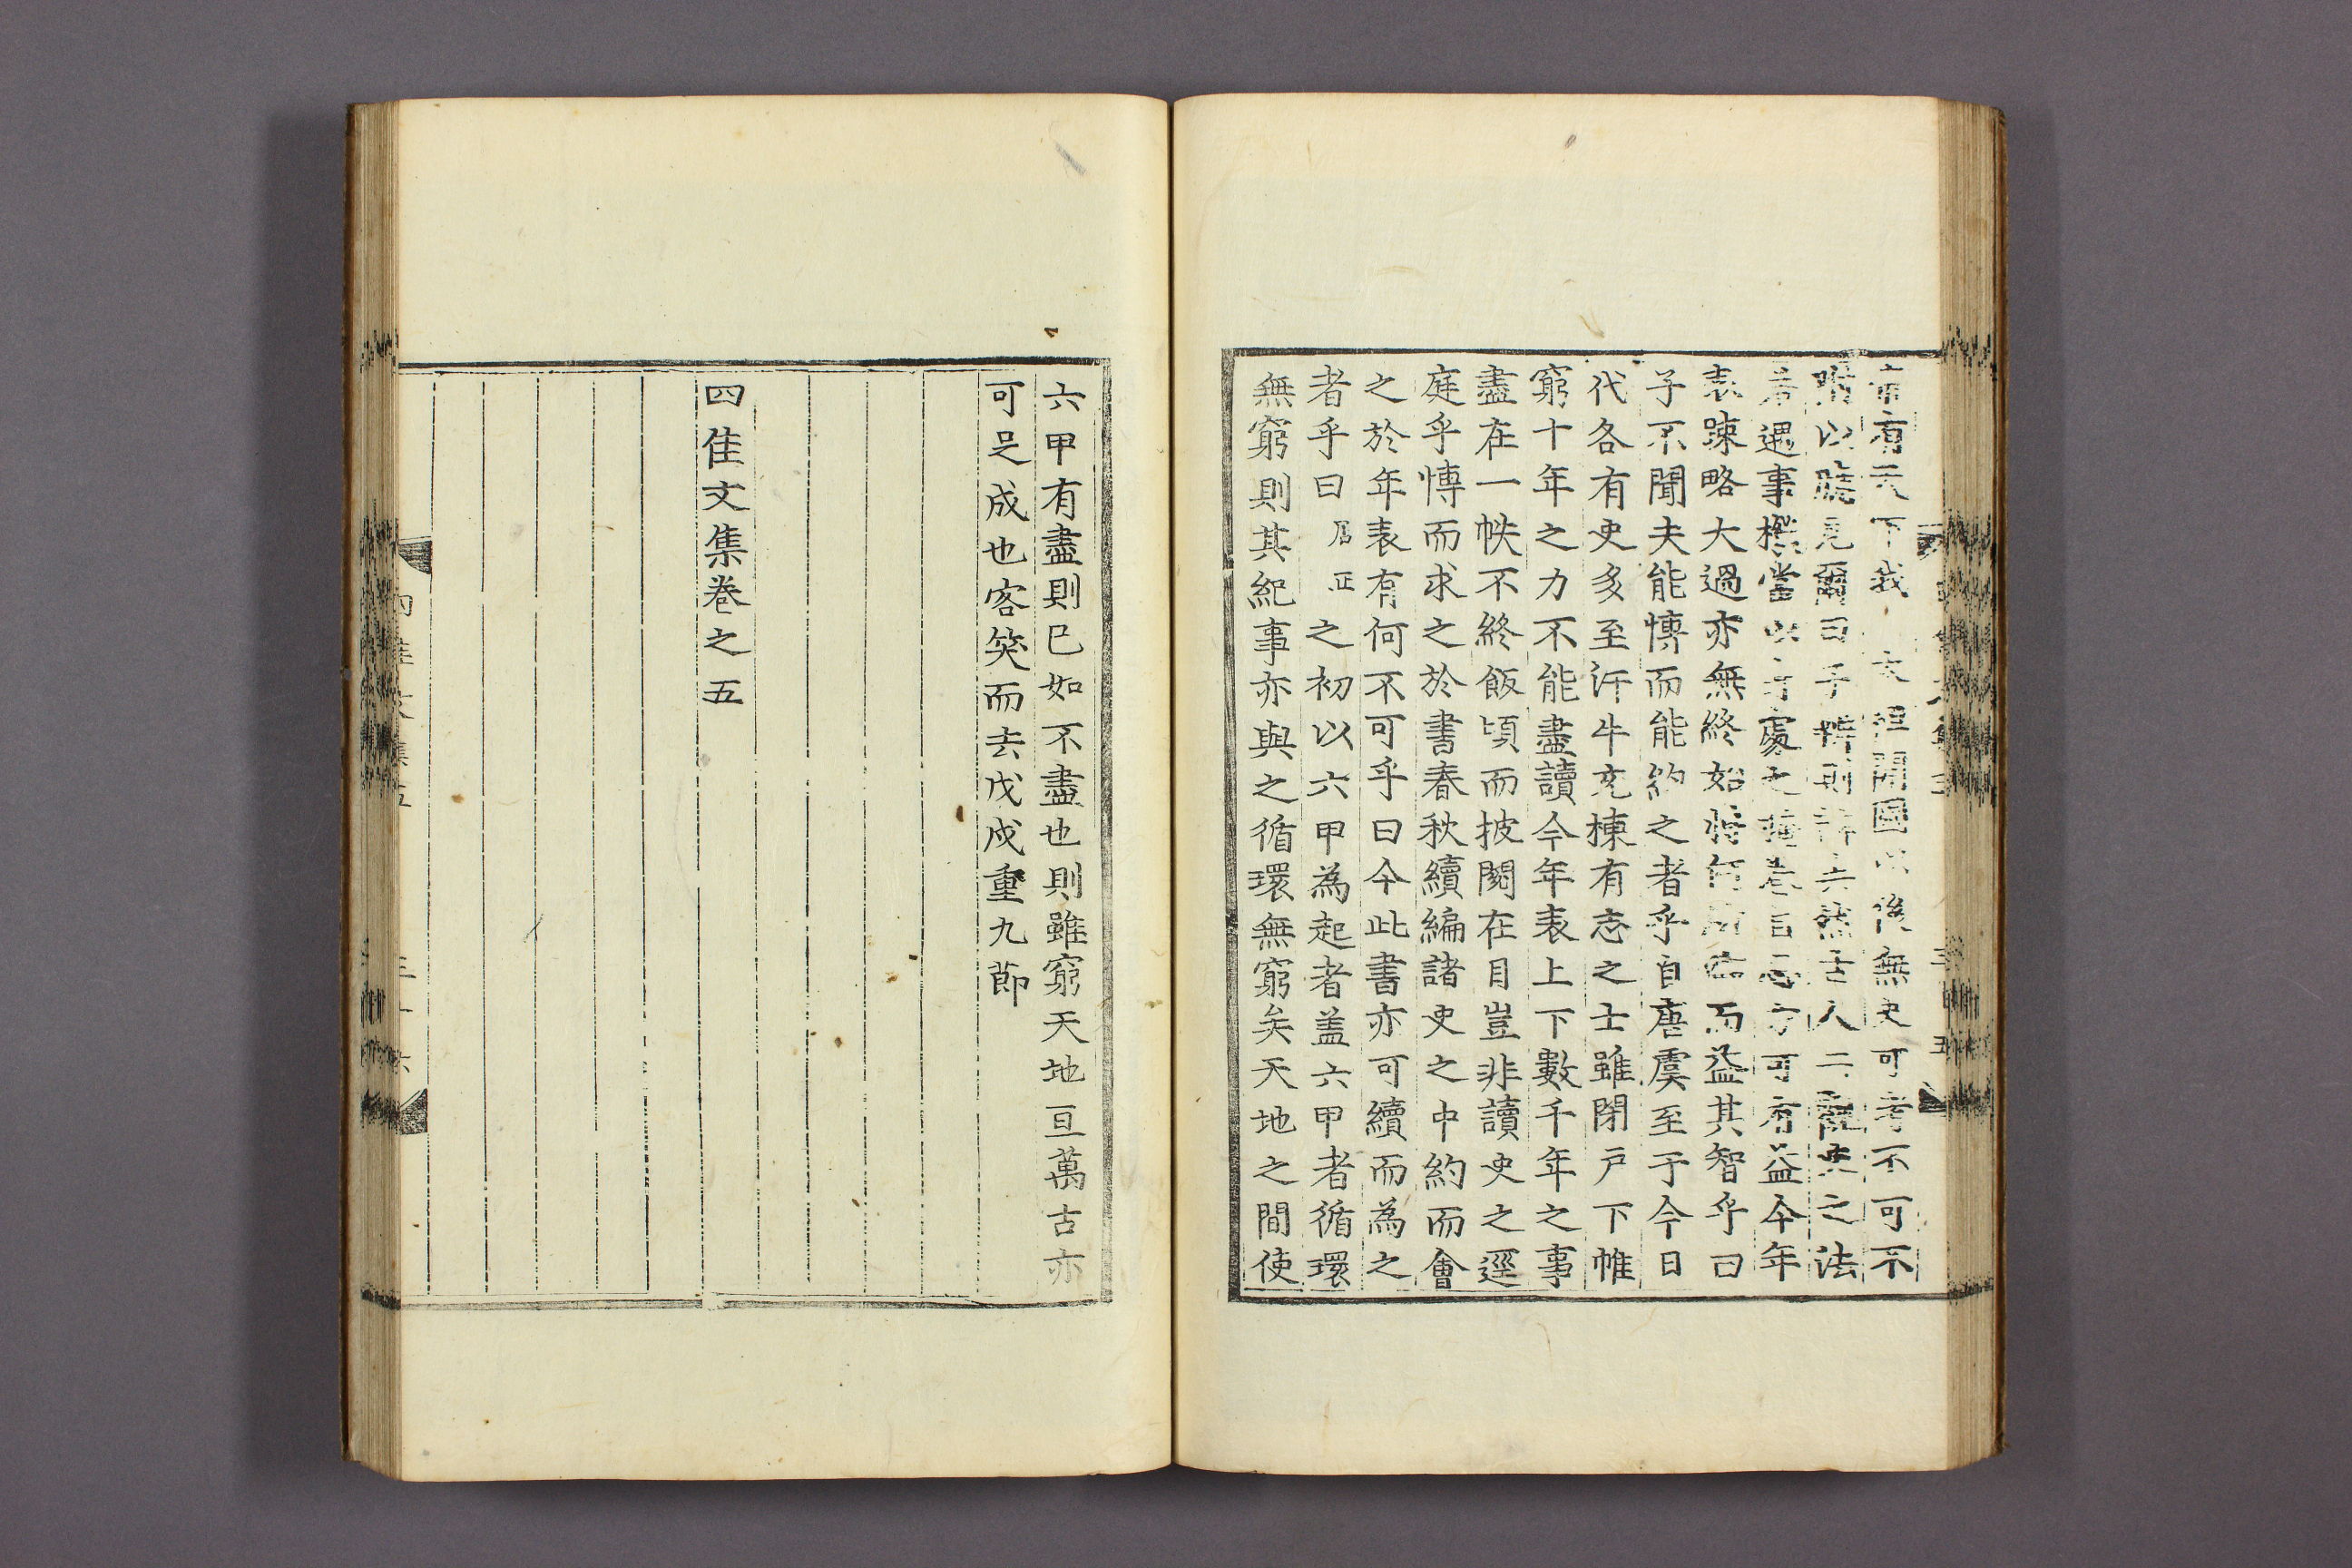 有天下我 開國以後無史可考不可不
以 爾曰予 則 古人 史之法
若遇事撰當以 處之 卷 方可有益今年
表疎略大過亦無終始將何所 而益其智乎曰
子不聞夫能博而能約之者乎自唐虞至于今日
代各有史多至汗牛充棟有志之士雖閉戶下帷
窮十年之力不能盡讀今年表上下數千年之事
盡在一帙不終飯頃而披閱在目豈非讀史之逕
庭乎博而求之於書春秋續編諸史之中約而會
之於年表有何不可乎曰今此書亦可續而為之
者乎曰 正之初以六甲為起者盖六甲者循環
無窮則其紀事亦與之循環無窮矣天地之間使
六甲有盡則已如不盡也則雖窮天地亘萬古亦
可足成也客笑而去戊戌重九節
四佳文集卷之五
四佳文集五
三十六